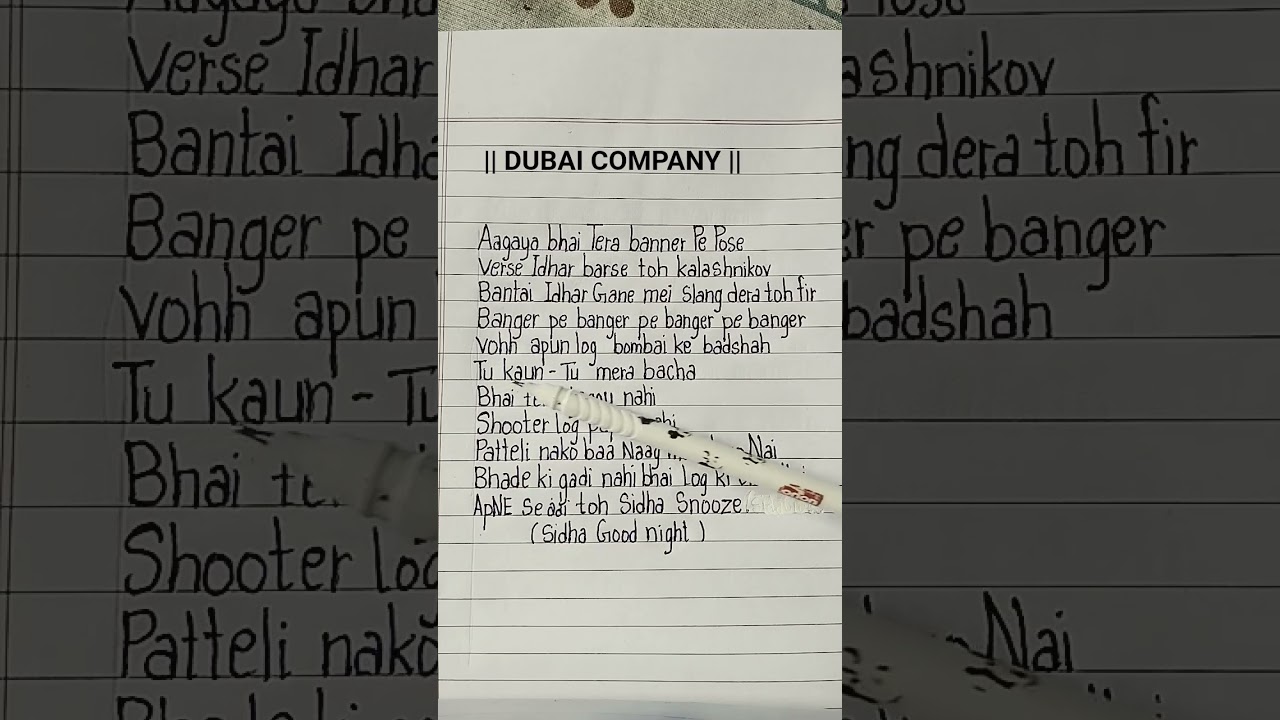 || DUBAI COMPANY ||
Aagaya bhai Tera banner Pe Pose
Verse Idhar barse toh kalashnikov
Bantai Idhar Gane mei Slang dera toh fir
Banger pe banger pe banger pe banger
vohh apun log bombai ke badshah
Tu kaun - Tu mera bacha
Bhai nahi
Shooter log
Patteli nako baa Naag Nai
Bhade ki gadi nahi bhai Log ki
ApNE Se adi toh Sidha Snooze
(Sidha Good night )